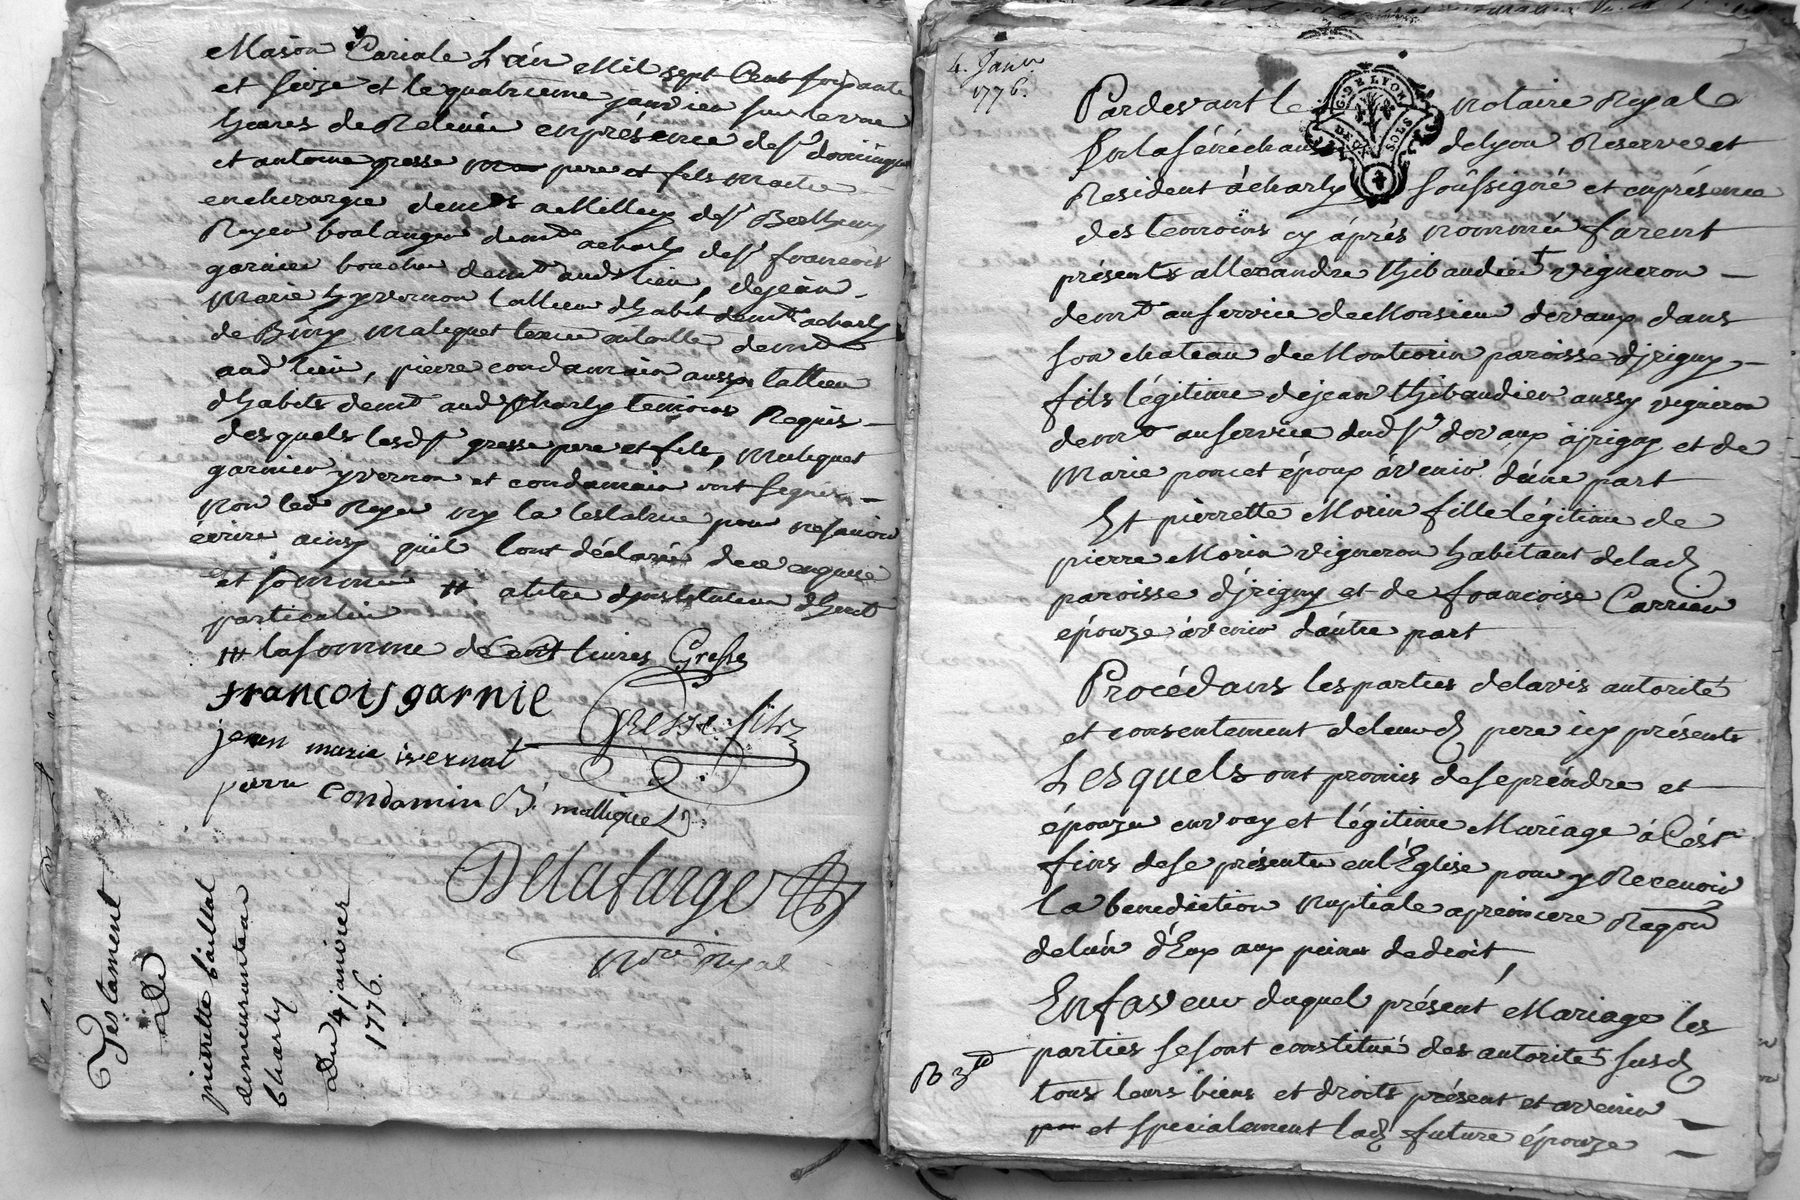 Maison Curiale L'an Mil sept Cent soixante
et seize et le quatrieme janvier sur les une
heures de Relevée en présence de sr dominique
et antoine gresse pere et fils Maitre
en chirurgie demts a Millery de sr Barthelemy
Reyer boulanger demt a charly de sr francois
garnier boucher demt aud. lieu, de jean
Marie yvernon tallieur d'habit demt a charly
de Maliquet demt
aud. lieu, pierre condamin aussy tallieur
d'habits demt aud. Charly temoins Requis
desquels lesd. srs gresse pere et fils, Maliquet
garnier yvernon et condamin ont signés
non led. Reyer ny la testatrice pour ne savoir
écrire ainsy qu'il l'ont déclaré de ce enquis
et sommés # a titre d'institution d'herit.
particulier
## la somme de Cent livres Gresse
françois garnie Gresse fils
jean marie ivernat
pierre condamin B. mallique
Delafarge
Nore Royal
Testament
de
pierrette baillat
demeurante a
Charly
du 4 janvier
1776.
4. Janv.
1776.
Pardevant le notaire Royal
En la sénéchaussée de lyon Reservé et
Resident à charly soussigné et en présence
des temoins cy àprés nommés furent
présents allexandre thibaudier † vigneron
demt au service de Monsieur devaux dans
son chateau de Montcorin paroisse d'jrigny
fils légitime de jean thibaudier aussy vigneron
demt au service dud. sr devaux à jrigny et de
Marie poncet époux àvenir d'une part
Et pierrette Morin fille légitime de
pierre Morin vigneron habitant de lad.
paroisse d'jrigny et de francoise Carrier
épouze àvenir d'autre part
Procédans les parties de l'avis autorité
et consentement de leurd. pere icy présents
Lesquels ont promis de se prendre et
épouzer en vray et légitime Mariage à Cést
fins de se présenter en l'Eglise pour y Recevoir
la benediction nuptiale a premiere Requon
de l'un d'Eux aux peines de droit,
En faveur duquel présent Mariage les
parties se sont constitué des autorités susd.
tous leurs biens et droits présent et avenir
et specialement lad. future épouze
G. DE LYON
DEUX SOLS
R 3 td